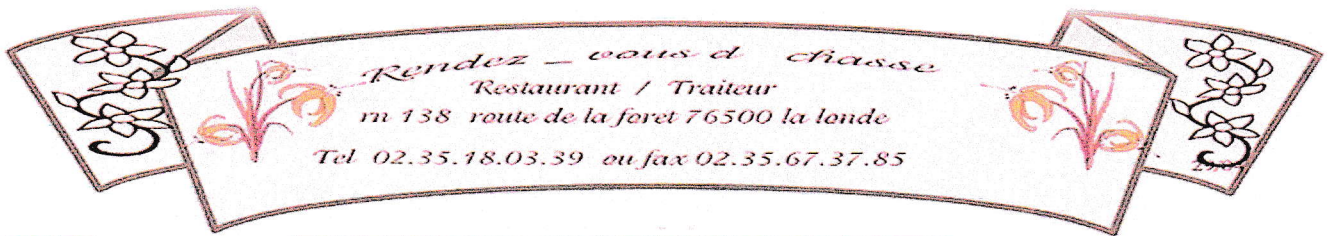 Rendez _ vous d chasse
Restaurant / Traiteur
rn 138 route de la foret 76500 la londe
Tel 02.35.18.03.39 ou fax 02.35.67.37.85